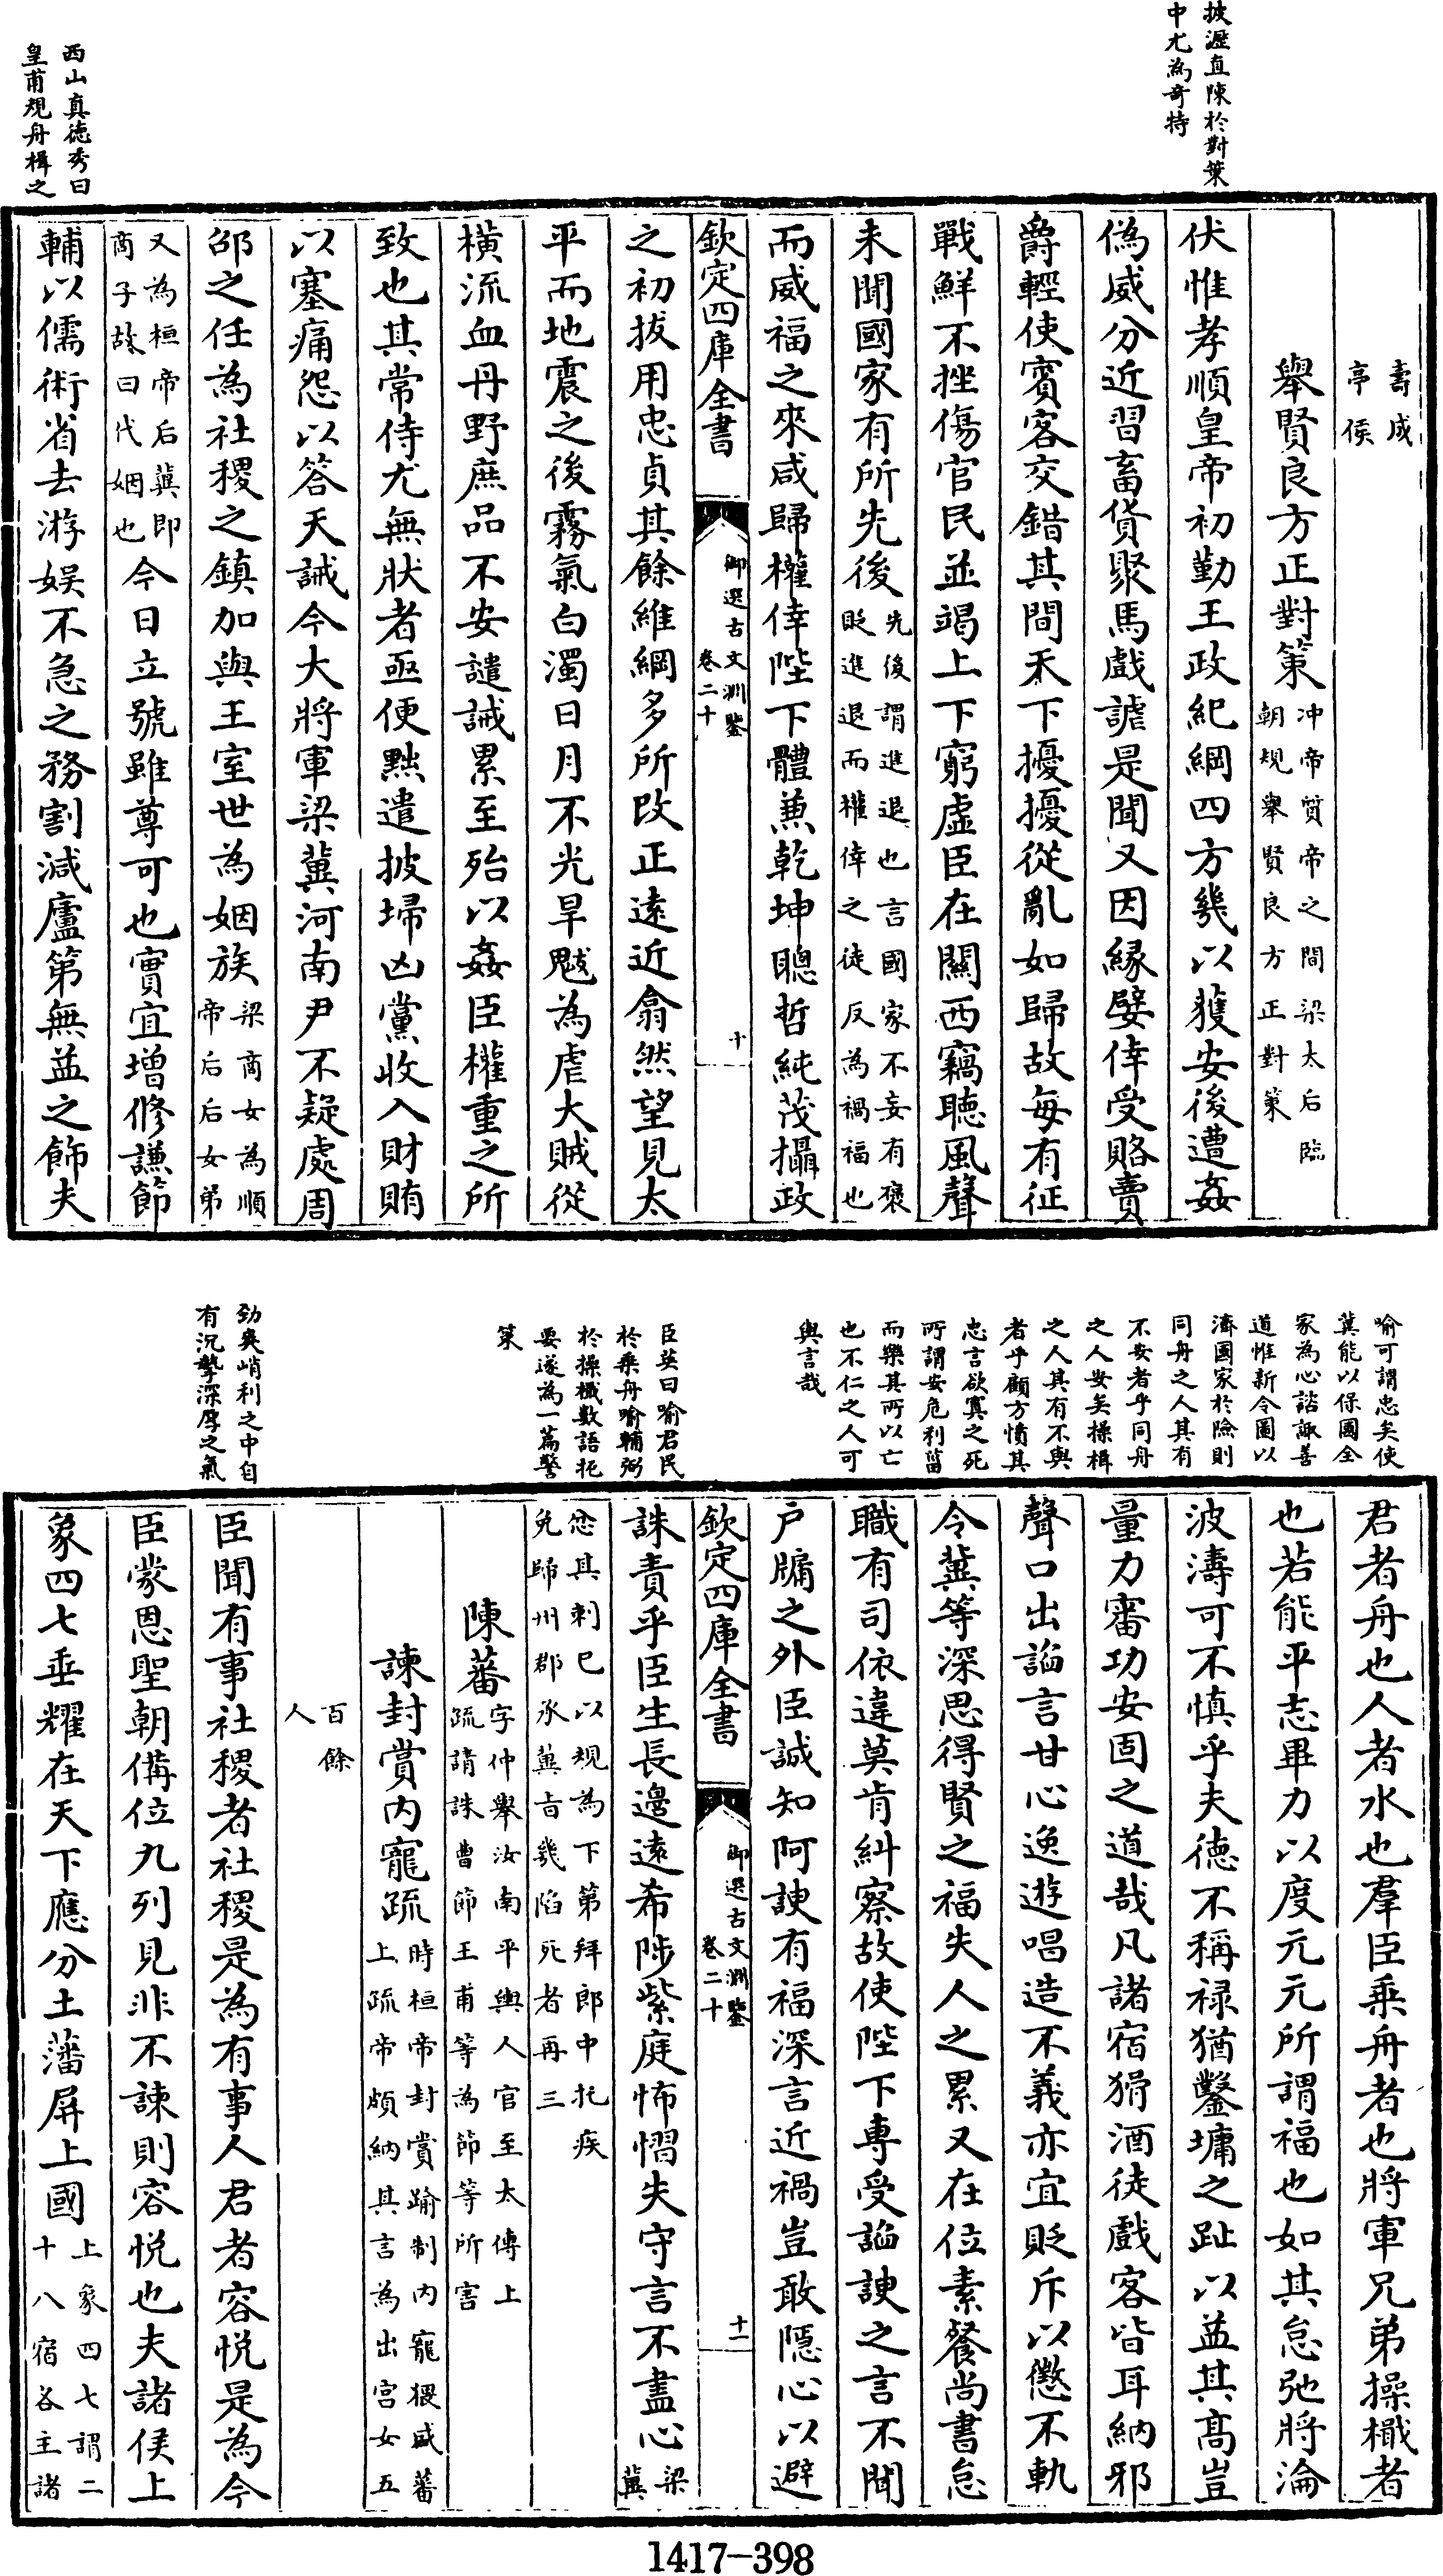 披瀝直陳於對策
中尤為奇特
西山真徳秀曰
皇甫規舟楫之
壽成
亭侯
舉賢良方正對策
冲帝質帝之間梁太后臨
朝規舉賢良方正對策
伏惟孝順皇帝初勤王政紀綱四方幾以獲安後遭姦
偽威分近習畜貨聚馬戲謔是聞又因緣嬖倖受賂賣
爵輕使賓客交錯其間天下擾擾從亂如歸故每有征
戰鮮不挫傷官民並竭上下窮虛臣在關西竊聽風聲
未聞國家有所先後
先後謂進退也言國家不妄有褒
貶進退而權倖之徒反為禍福也
而威福之來咸歸權倖陛下體兼乾坤聰哲純茂攝政
欽定四庫全書
御選古文淵鑒
卷二十
十
之初拔用忠貞其餘維綱多所改正遠近翕然望見太
平而地震之後霧氣白濁日月不光旱魃為虐大賊從
横流血丹野庶品不安譴誡累至殆以姦臣權重之所
致也其常侍尤無狀者亟便黜遣披埽凶黨收入財賄
以塞痛怨以答天誡今大將軍梁冀河南尹不疑處周
邵之任為社稷之鎮加與王室世為姻族
梁商女為順
帝后后女弟
又為桓帝后冀即
商子故曰代姻也
今日立號雖尊可也實宜增修謙節
輔以儒術省去游娱不急之務割減廬第無益之飾夫
喻可謂忠矣使
冀能以保國全
家為心諮諏善
道惟新令圖以
濟國家於險則
同舟之人其有
不安者乎同舟
之人安矣操楫
之人其有不與
者乎顧方憤其
忠言欲寘之死
所謂安危利菑
而樂其所以亡
也不仁之人可
與言哉
臣英曰喻君民
於乘舟喻輔弼
於操檝數語扼
要遂為一篇警
策
勁爽峭利之中自
有沉摯深厚之氣
君者舟也人者水也羣臣乘舟者也將軍兄弟操檝者
也若能平志畢力以度元元所謂福也如其怠弛將淪
波濤可不慎乎夫徳不稱禄猶鑿墉之趾以益其髙豈
量力審功安固之道哉凡諸宿猾酒徒戲客皆耳納邪
聲口出諂言甘心逸遊唱造不義亦宜貶斥以懲不軌
令冀等深思得賢之福失人之累又在位素餐尚書怠
職有司依違莫肯糾察故使陛下専受諂諛之言不聞
户牖之外臣誠知阿諛有福深言近禍豈敢隠心以避
欽定四庫全書
御選古文淵鑒
卷二十
十一
誅責乎臣生長邊逺希陟紫庭怖慴失守言不盡心
梁
冀
忿其刺已以規為下第拜郎中托疾
免歸州郡承冀旨幾陷死者再三
陳蕃
字仲舉汝南平輿人官至太傅上
疏請誅曹節王甫等為節等所害
諫封賞内寵疏
時桓帝封賞踰制内寵猥盛蕃
上疏帝頗納其言為出宫女五
百餘
人
臣聞有事社稷者社稷是為有事人君者容悦是為今
臣蒙恩聖朝備位九列見非不諫則容悦也夫諸侯上
象四七垂耀在天下應分土藩屏上國
上象四七謂二
十八宿各主諸
1417-398